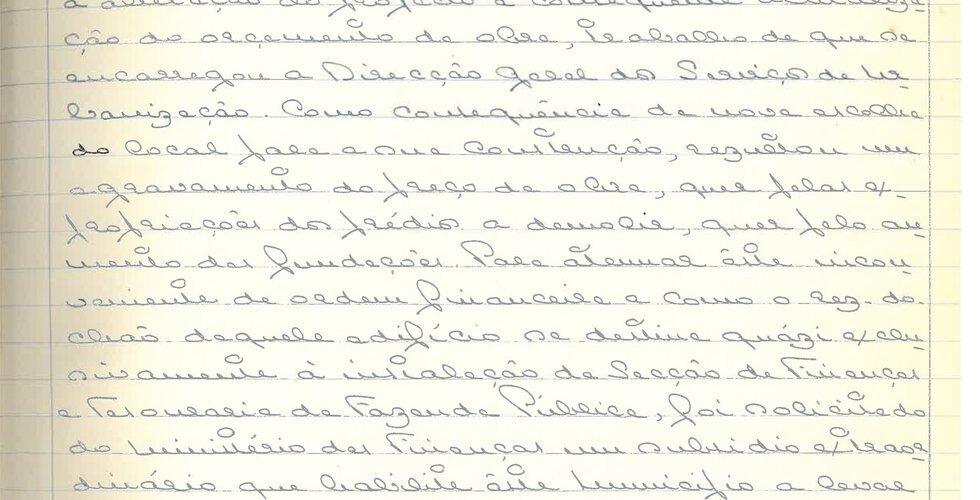 a alteração do projecto e consequente actualiza-
ção do orçamento da obra, trabalho de que se
encarregou a Direcção Geral dos Serviços de Ur-
banização. Como consequência da nova escolha
do local para a sua construção, rezultou um
agravamento do preço da obra, quer pelas ex-
propriações dos prédio a demolir, quer pelo au-
mento das fundações. Para atenuar êste incon-
veniente de ordem financeira e como o rez-do-
chão daquele edifício se destina quázi exclu-
sivamente à instalação da Secção de Finanças
e Tesouraria da Fazenda Pública, foi solicitado
do Ministério das Finanças um subsidio extraor-
dinário que habilite êste Município a levar